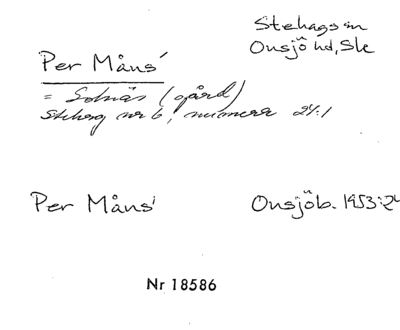 Stehags sn
Onsjö hd, Sk
Per Måns'
= Solnäs (gård)
Stehag nr 6, numera 24:1
Per Måns'
Onsjöb. 1953:2
Nr 18586